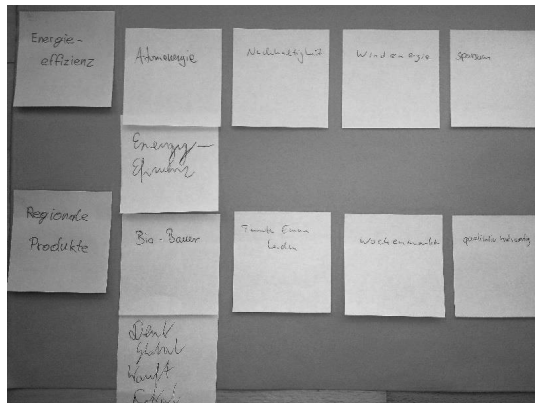 Energie-
effizienz
Atomenergie
Nachhaltigkeit
Windenergie
sparsam
Energy-
Regionale
Produkte
Bio-Bauer
Tante Emma
Laden
Wochenmarkt
qualitativ hochwertig
Denk
Global
Kauft